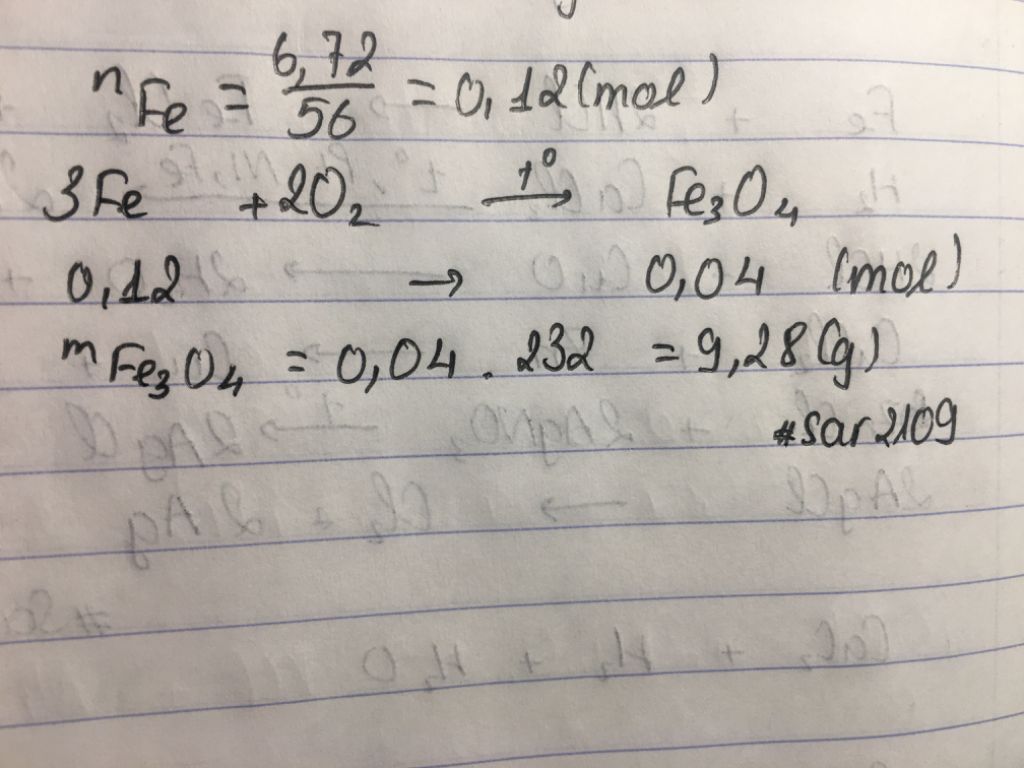 nFe = 6,72/56 = 0,12 (mol)
3Fe + 2O₂ →(t°) Fe₃O₄
0,12 → 0,04 (mol)
mFe₃O₄ = 0,04 . 232 = 9,28 (g)
#sar2109